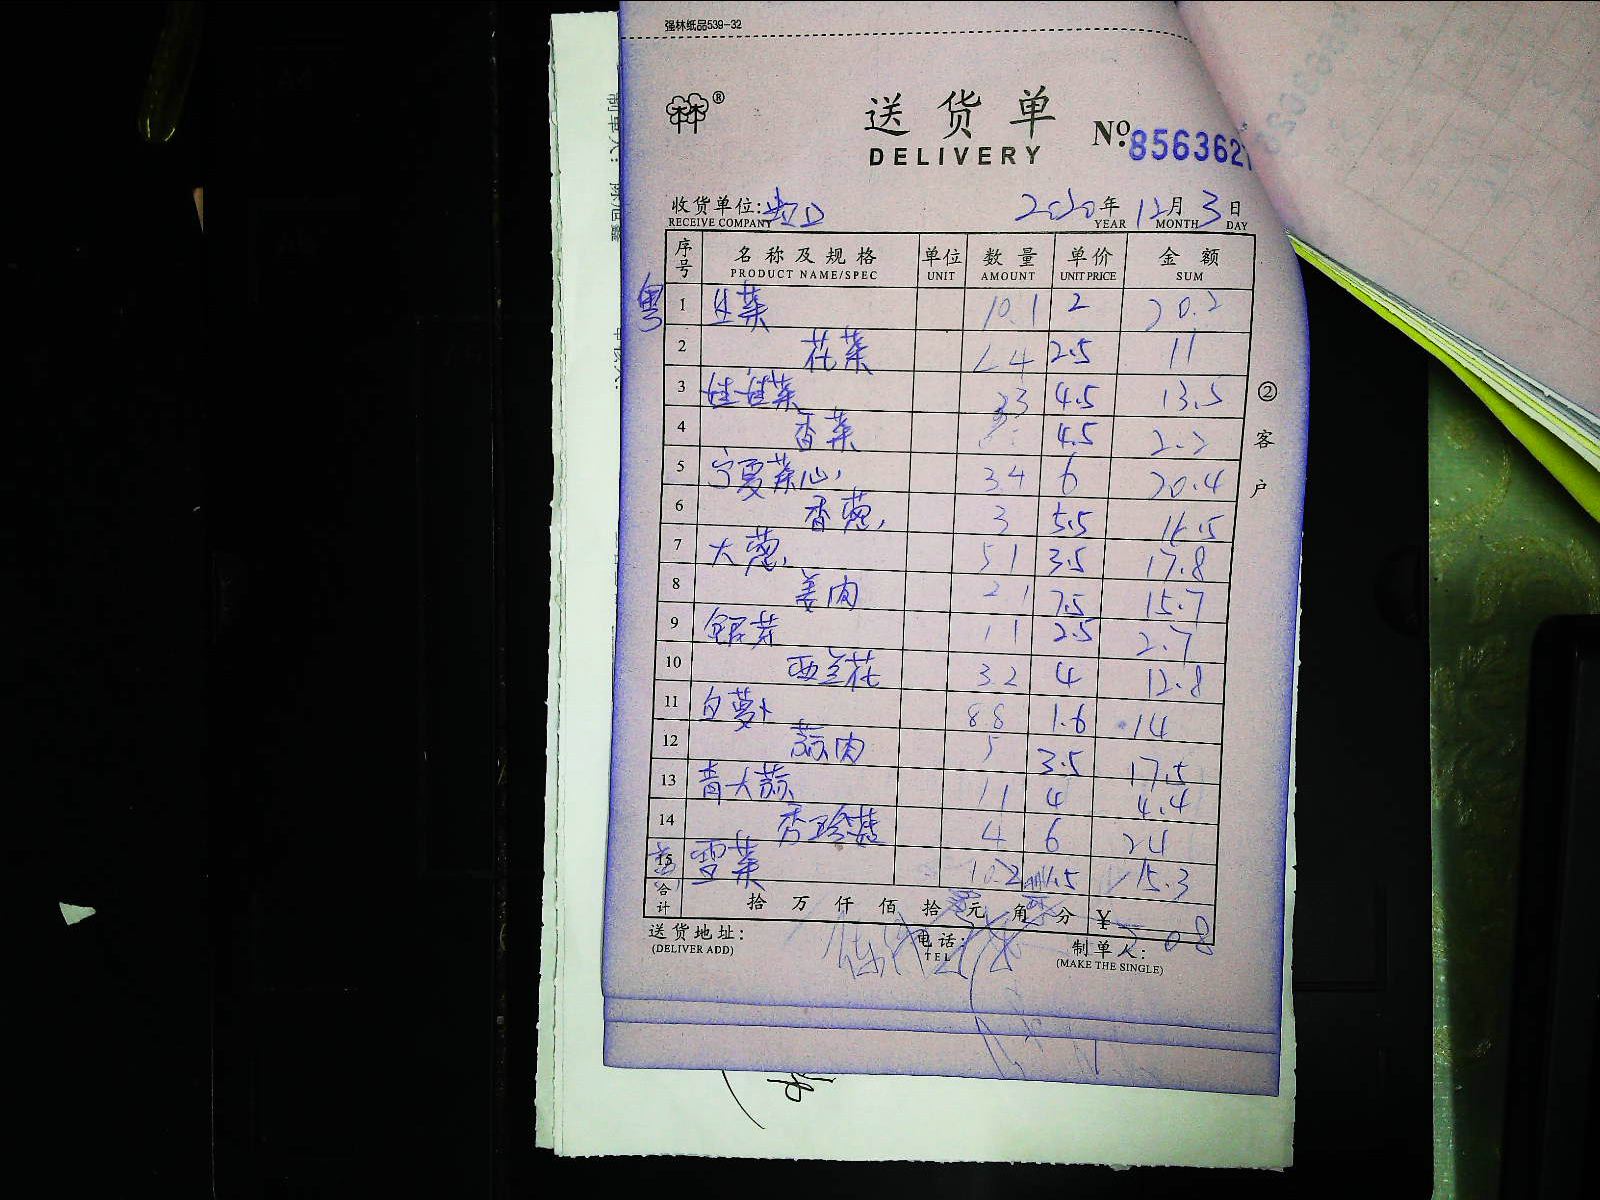 强林纸品539-32
林林®
送货单
DELIVERY
№: 856362
收货单位:
RECEIVE COMPANY
2020年 12月 3日
YEAR MONTH DAY
序号 名称及规格 单位 数量 单价 金额
PRODUCT NAME/SPEC UNIT AMOUNT UNIT PRICE SUM
粤 1 韭菜 10.1 2 20.2
2 花菜 4.4 2.5 11
3 娃娃菜 3 4.5 13.5
4 香菜 4.5 2.2
5 宁夏菜心 3.4 6 20.4
6 香葱 3 5.5 16.5
7 大葱 5.1 3.5 17.8
8 姜肉 2.1 7.5 15.7
9 银芽 1.1 2.5 2.7
10 西兰花 3.2 4 12.8
11 白萝卜 8.8 1.6 14
12 蒜肉 5 3.5 17.5
13 青大蒜 1.1 4 4.4
14 秀珍菇 4 6 24
15 雪菜 10.2 1.5 15.3
合计 拾 万 仟 佰 拾 元 角 分 ¥ 208
送货地址: 电话: 制单人:
(DELIVER ADD) TEL (MAKE THE SINGLE)
②客户